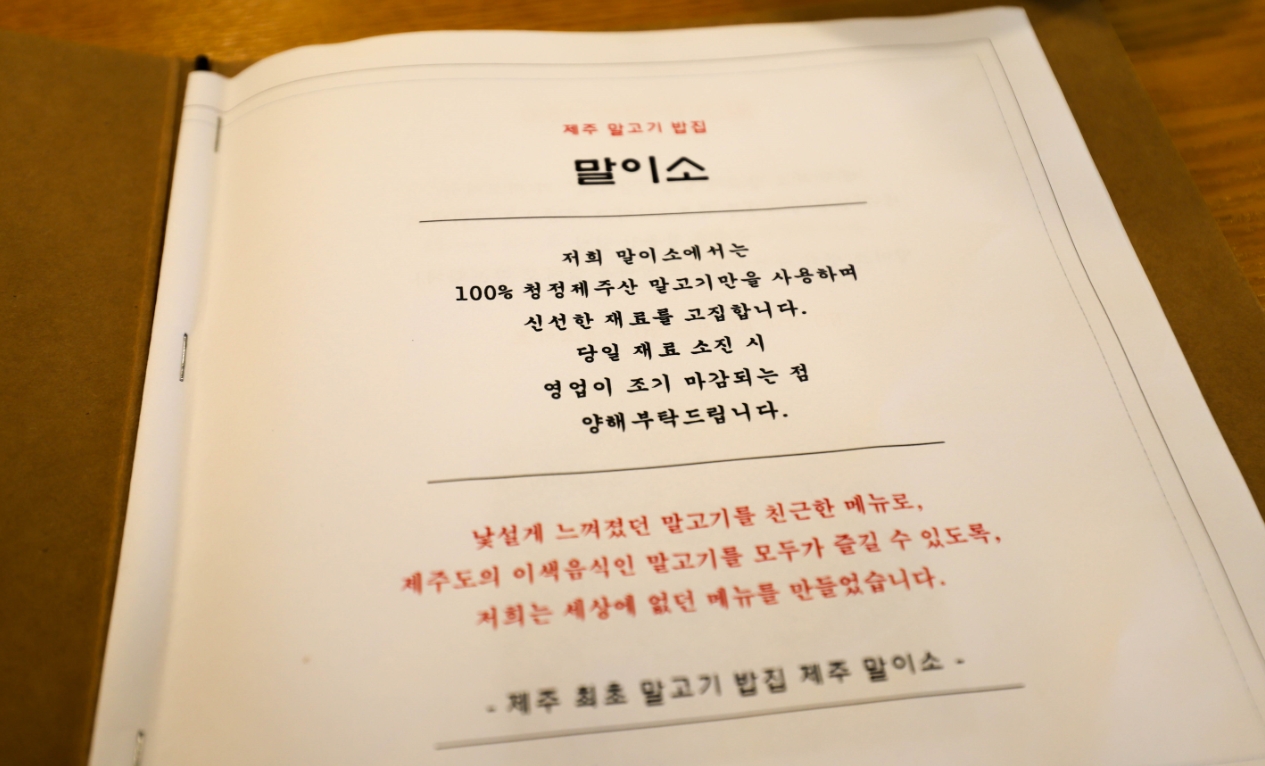 제주 말고기 밥집
말이소
저희 말이소에서는
100% 청정제주산 말고기만을 사용하며
신선한 재료를 고집합니다.
당일 재료 소진 시
영업이 조기 마감되는 점
양해부탁드립니다.
낯설게 느껴졌던 말고기를 친근한 메뉴로,
제주도의 이색음식인 말고기를 모두가 즐길 수 있도록,
저희는 세상에 없던 메뉴를 만들었습니다.
- 제주 최초 말고기 밥집 제주 말이소 -